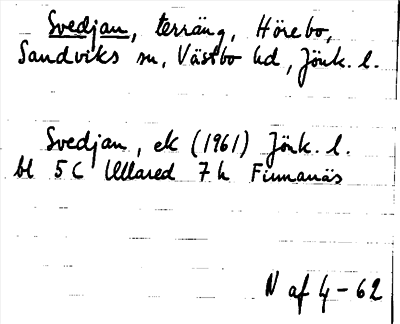 Svedjan, terräng, Hörebo,
Sandviks sn, Västbo hd, Jönk. l.
Svedjan, ek (1961) Jönk. l.
bl 5 C Ullared 7 h Finnanäs
N af 4-62